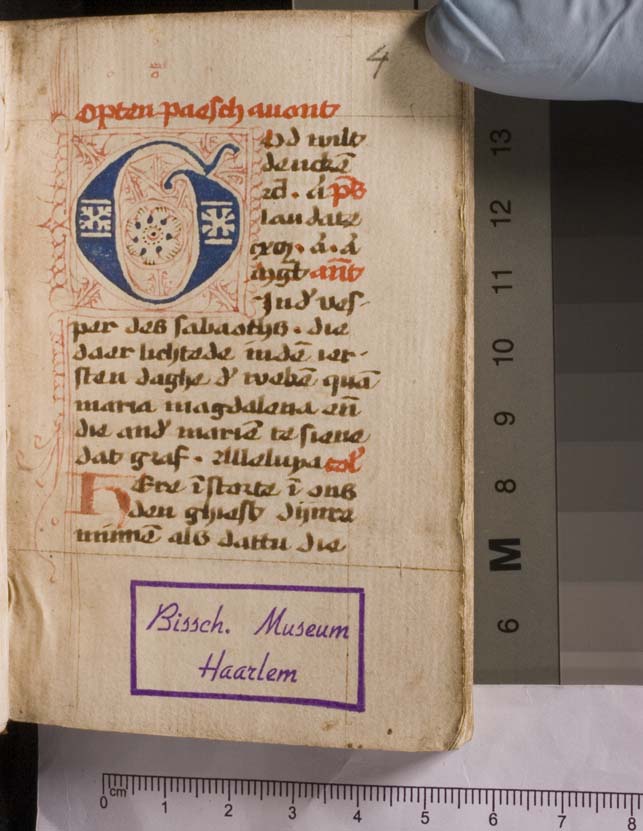 4
opten paesch auont
God wilt
denckē
laudate
Jnd' ves-
per des sabaoths. die
daer lichtede indē ier-
sten daghe d' wekē quā
maria magdalena eñ
die and' mariē te siene
dat graf. Alleluya col'
Here ī storte ī ons
den ghiest dijnre
minnē als dattu die
Bissch. Museum
Haarlem
13
12
11
10
9
8
M
6
0 cm 1 2 3 4 5 6 7 8